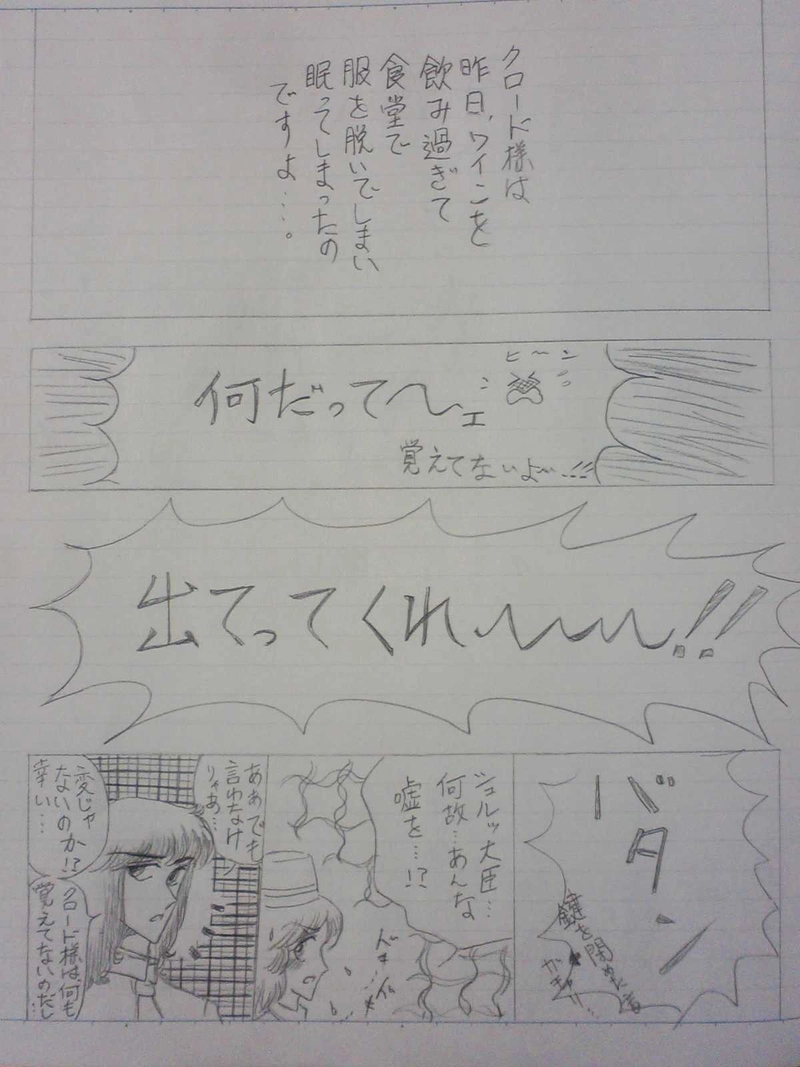 クロード様は
昨日、ワインを
飲み過ぎて
食堂で
服を脱いでしまい
眠ってしまったの
ですよ…。
何だって〜ェ
ヒ〜ン
覚えてないよ…!!
出てってくれ〜〜〜!!
バタン
鍵を閉める音
ガチャ…
シュルツ大臣…
何故…あんな
嘘を…!?
ドキ…ドキ…
ああでも
言わなけ
りゃあ…
変じゃ
ないのか!?
幸い…
クロード様は何も
覚えてないのだし…